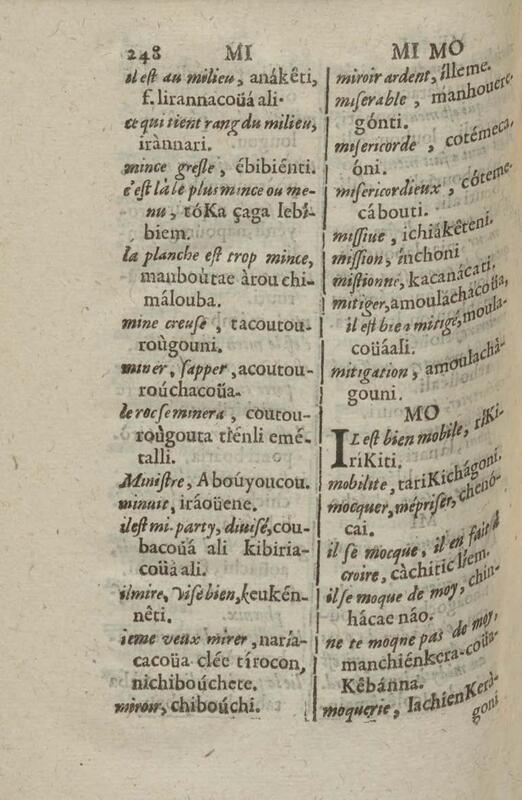 248 MI
il est au milieu, anákêti,
f. lirannacoüá ali.
ce qui tient rang du milieu,
irànnari.
mince gresle, ébibiénti.
c'est là le plus mince ou me-
nu, tóKa çaga lebí-
biem.
la planche est trop mince,
manboùtae àrou chi-
málouba.
mine creuse, tacoutou-
roùgouni.
miner, sapper, acoutou-
roúchacoüa.
le roc se minera, coutou-
roùgouta trénli emé-
talli.
Ministre, Aboúyoucou.
minuit, iráoüene.
il est mi-party, diuisé, cou-
bacoüá ali kibiria-
coüa ali.
il mire, vise bien, keukén-
nêti.
ie me veux mirer, naría-
cacoüa clée tírocon,
nichiboúchete.
miroir, chiboúchi.
MI MO
miroir ardent, ílleme.
miserable, manhouere-
gónti.
misericorde, cotémeca-
óni.
misericordieux, cóteme-
cábouti.
missiue, ichiákêteni.
mission, ínchoni
mistionne, kacanácati.
mitiger, amoulachácoüa,
il est bien mitigé, moula-
coüáali.
mitigation, amoulachà-
gouni.
MO
IL est bien mobile, ríKi-
ríKiti.
mobilite, taríKichágoni.
mocquer, mépriser, chenó-
cai.
il se mocque, il en fait à
croire, càchitic líem.
il se moque de moy, chin-
hácae náo.
ne te moqne pas de moy,
manchiénkera-coüa-
Kêbánna.
moquerie, IachienKerà-
goni